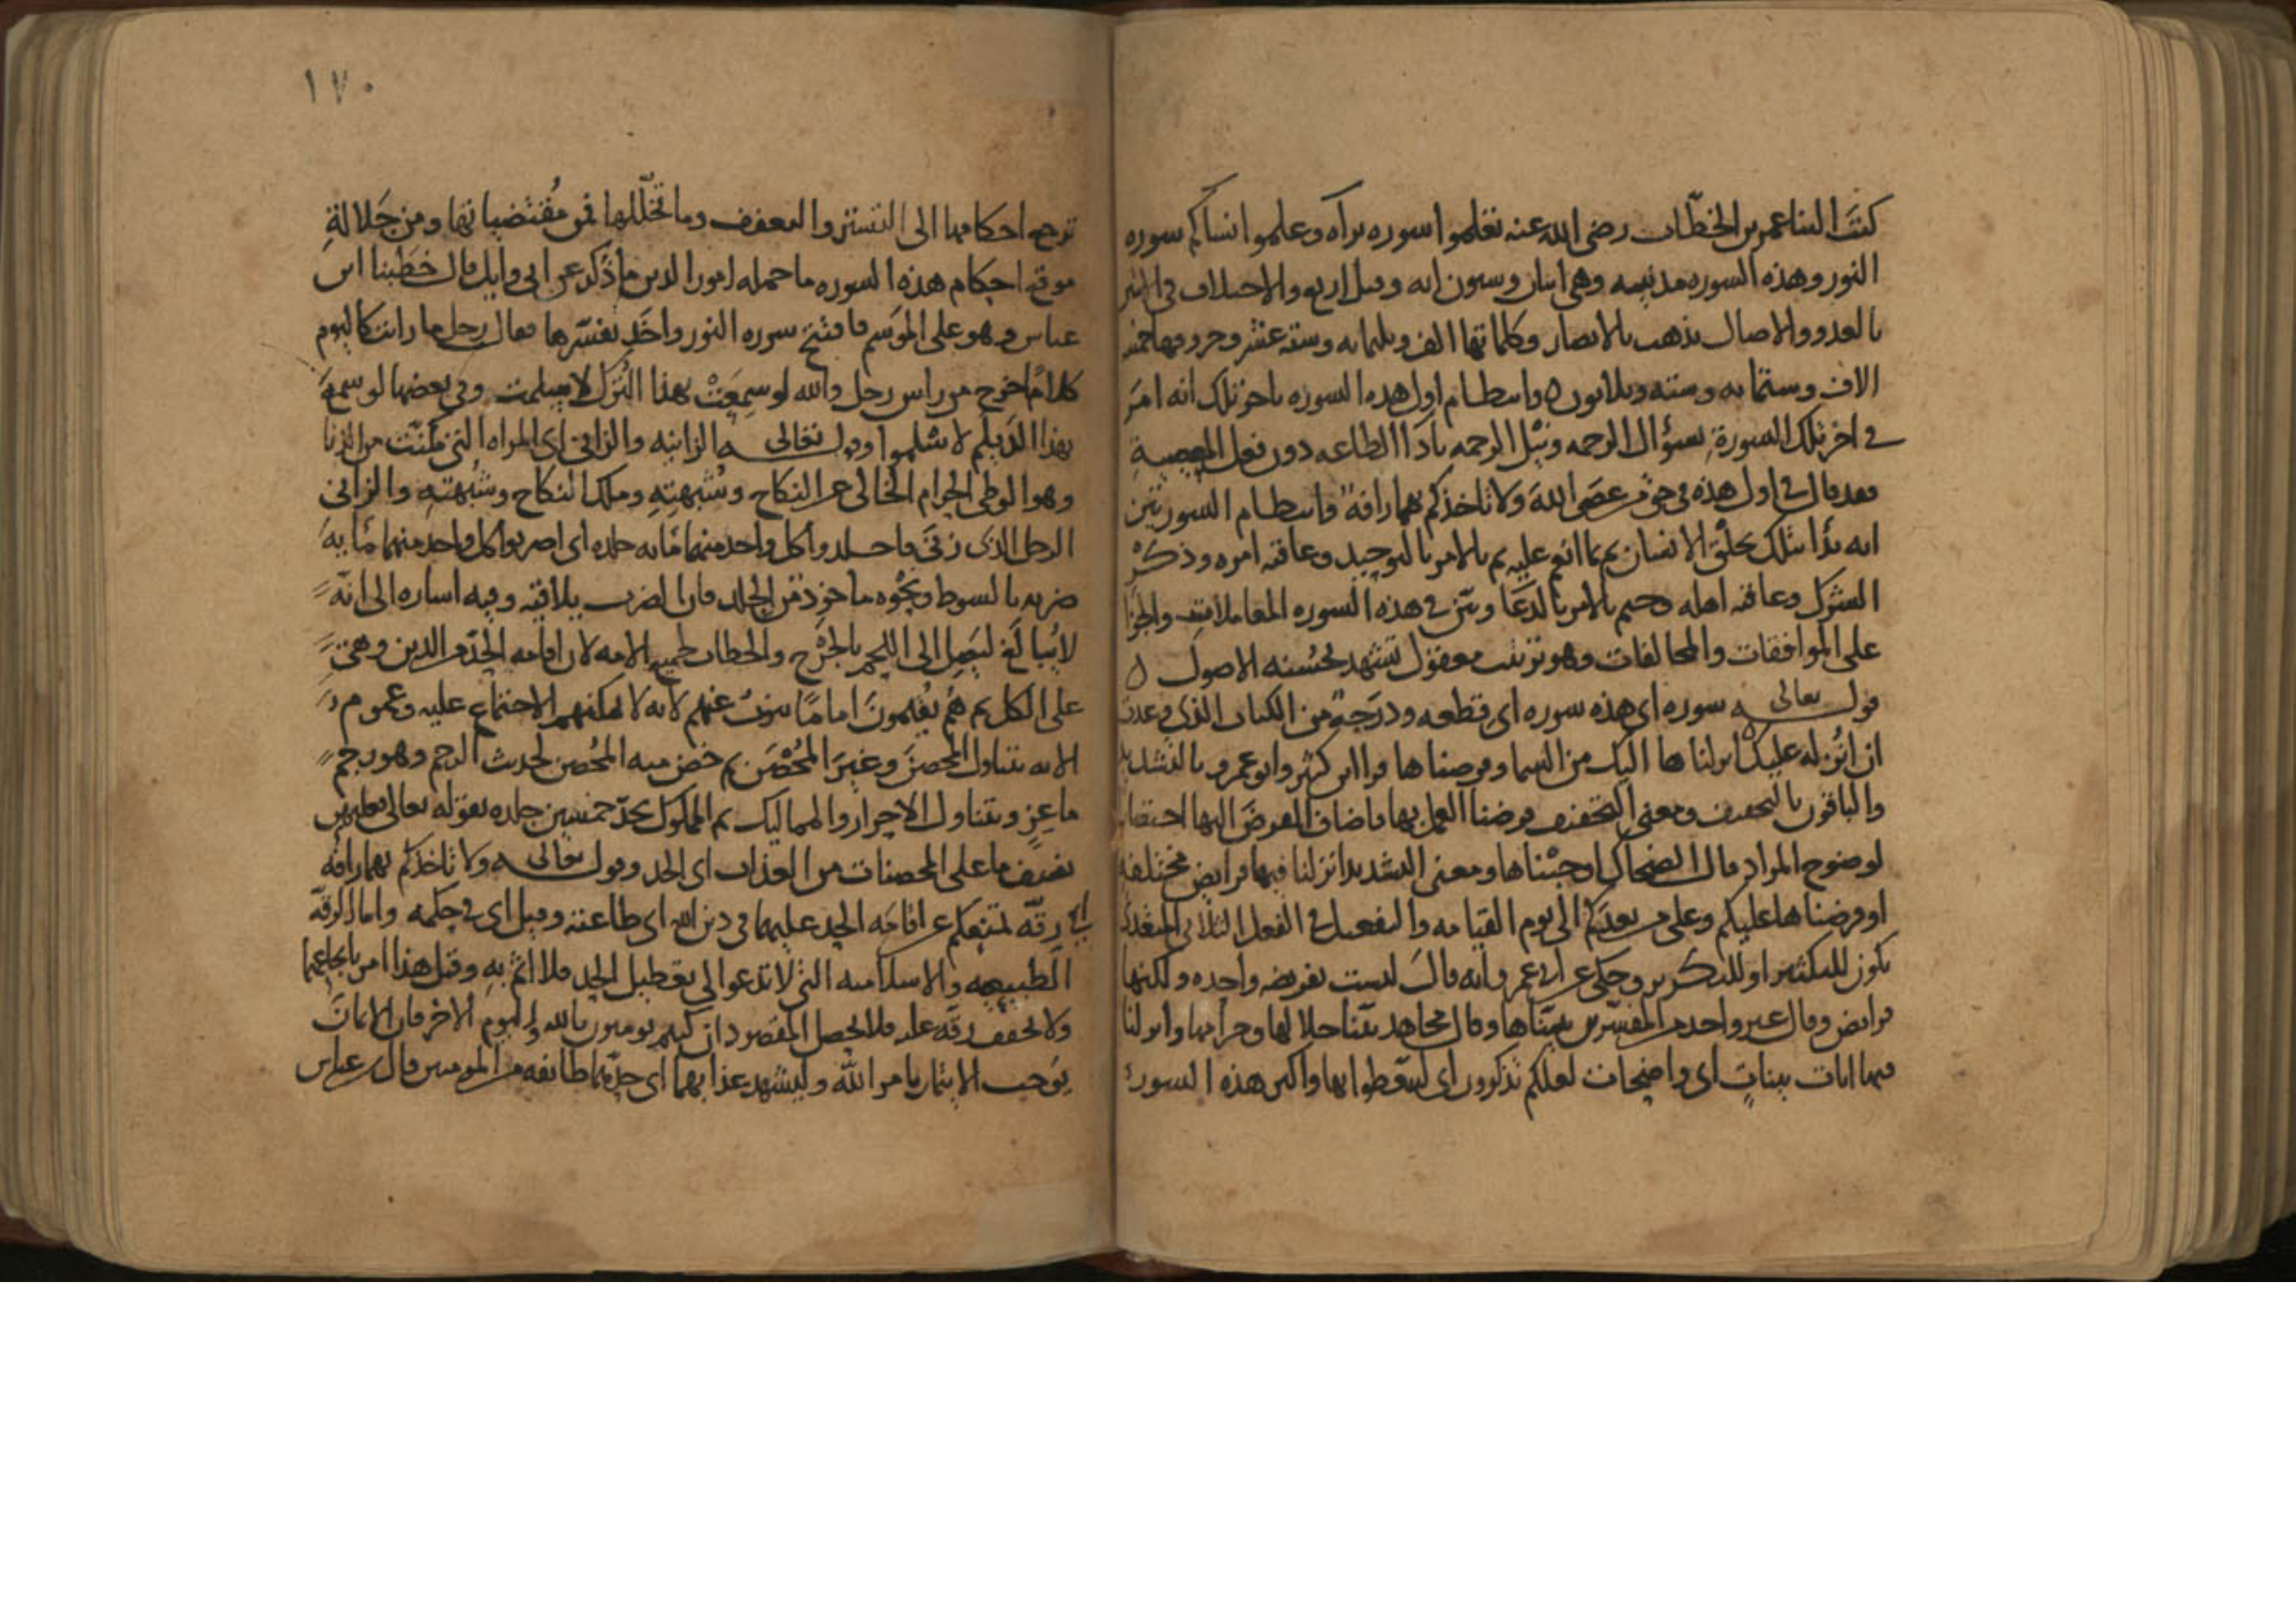 كتب الينا عمر بن الخطاب رضي الله عنه تعلموا سوره براه وعلموا انساكم سوره
النور وهذه السوره مدنيه وهي اثنان وستون ايه وقيل اربع والاختلاف في اثنتين
بالغدو والاصال يذهب بالابصار وكلماتها الف وثلثمايه وستة عشر وحروفها خمسه
الاف وستمايه وستة وثلاثون وانتظام اول هذه السوره باخر تلك انه امر
في اخر تلك السورة بسؤال الرحمه ونيل الرحمه باداالطاعه دون فعل المعصية
فقد قال في اول هذه في حق من عصى الله ولا تاخذكم بهما رافة وانتظام السورتين
انه بدا تلك بخلق الانسان ثم بما انعم عليه ثم بالامر بالتوحيد وعاقبه امره وذكر
الشرك وعاقبه اهله وختم بالامر بالدعا وبين في هذه السوره المعاملات والجزا
على الموافقات والمخالفات وهو ترتيب معقول تشهد لحسنه الاصول ه
قوله تعالى سوره اي هذه سوره اي قطعه ودرجة من الكتاب الذي وعدت
ان انزله عليك انزلناها اليك من السما وفرضناها قرا ابن كثير وابو عمرو بالتشديد
والباقون بالتخفيف ومعنى التخفيف فرضنا العمل بها فاضاف الفرض اليها اختصارا
لوضوح المراد قال الضحاك اوجبناها ومعنى التشديد انزلنا فيها فرايض مختلفة
او فرضناها عليكم وعلى من بعدكم الى يوم القيامه والتفعيل في الفعل الثلاثي المتعدي
يكون للتكثير او للتكرير وحكي عن ابي عمرو انه قال ليست بفريضه واحده ولكنها
فرايض وقال غير واحد من المفسرين بيناها وقال مجاهد بينا حلالها وحرامها وانزلنا
فيها ايات بينات اي واضحات لعلكم تذكرون اي لتتعظوا بها واكثر هذه السورة
١٧٠
ترجع احكامها الى التستر والتعفف وما تخللها فمن مقتضياتها ومن جلالة
موقع احكام هذه السوره ما حمله امور الدين ما ذكر عن ابي وايل قال خطبنا ابن
عباس وهو على الموسم فافتتح سوره النور واخذ يفسرها فقال رجل ما رايت كاليوم
كلاما خرج من راس رجل والله لو سمعت بهذا الترك لاسلمت وفي بعضها لو سمع
بهذا الديلم لاسلموا وقوله تعالى الزانيه والزاني اي المراه التي مكنت من الزنا
وهو الوطي الحرام الخالي عن النكاح وشبهته وملك النكاح وشبهته والزاني
الرجل الذي زنى فاجلدوا كل واحد منهما مايه جلده اي اضربوا كل واحد منهما مايه
ضربه بالسوط ونحوه ماخوذ من الجلد فان الضرب يلاقيه وفيه اشاره الى انه
لا يبالغ ليصل الى اللحم بالجرح والخطاب لجميع الامه لان اقامه الحد من الدين وهي
على الكل ثم هم يقيمون اماما ينوب عنهم لانه لا يمكنهم الاجتماع عليه وعموم
الايه يتناول المحصن وغير المحصن ثم خص منه المحصن لحديث الرجم وهو رجم
ماعز ويتناول الاحرار والمماليك ثم المملوك يحد خمسين جلده بقوله تعالى فعليهن
نصف ما على المحصنات من العذاب اي الحد وقوله تعالى ولا تاخذكم بهما رافه
اي رقة تمنعكم عن اقامه الحد عليهما في دين الله اي طاعته وقيل اي في حكمه واما الرقة
الطبيعيه والاسلاميه التي لا تدعوا الى تعطيل الحد فلا اثم به وقيل هذا امر بايجاعهما
ولا تخفف رقه عليه فلا يحصل المقصود ان كنتم تومنون بالله واليوم الاخر فان الايمان
يوجب الايتمار بامر الله وليشهد عذابهما اي حدهما طائفه من المومنين قال ابن عباس